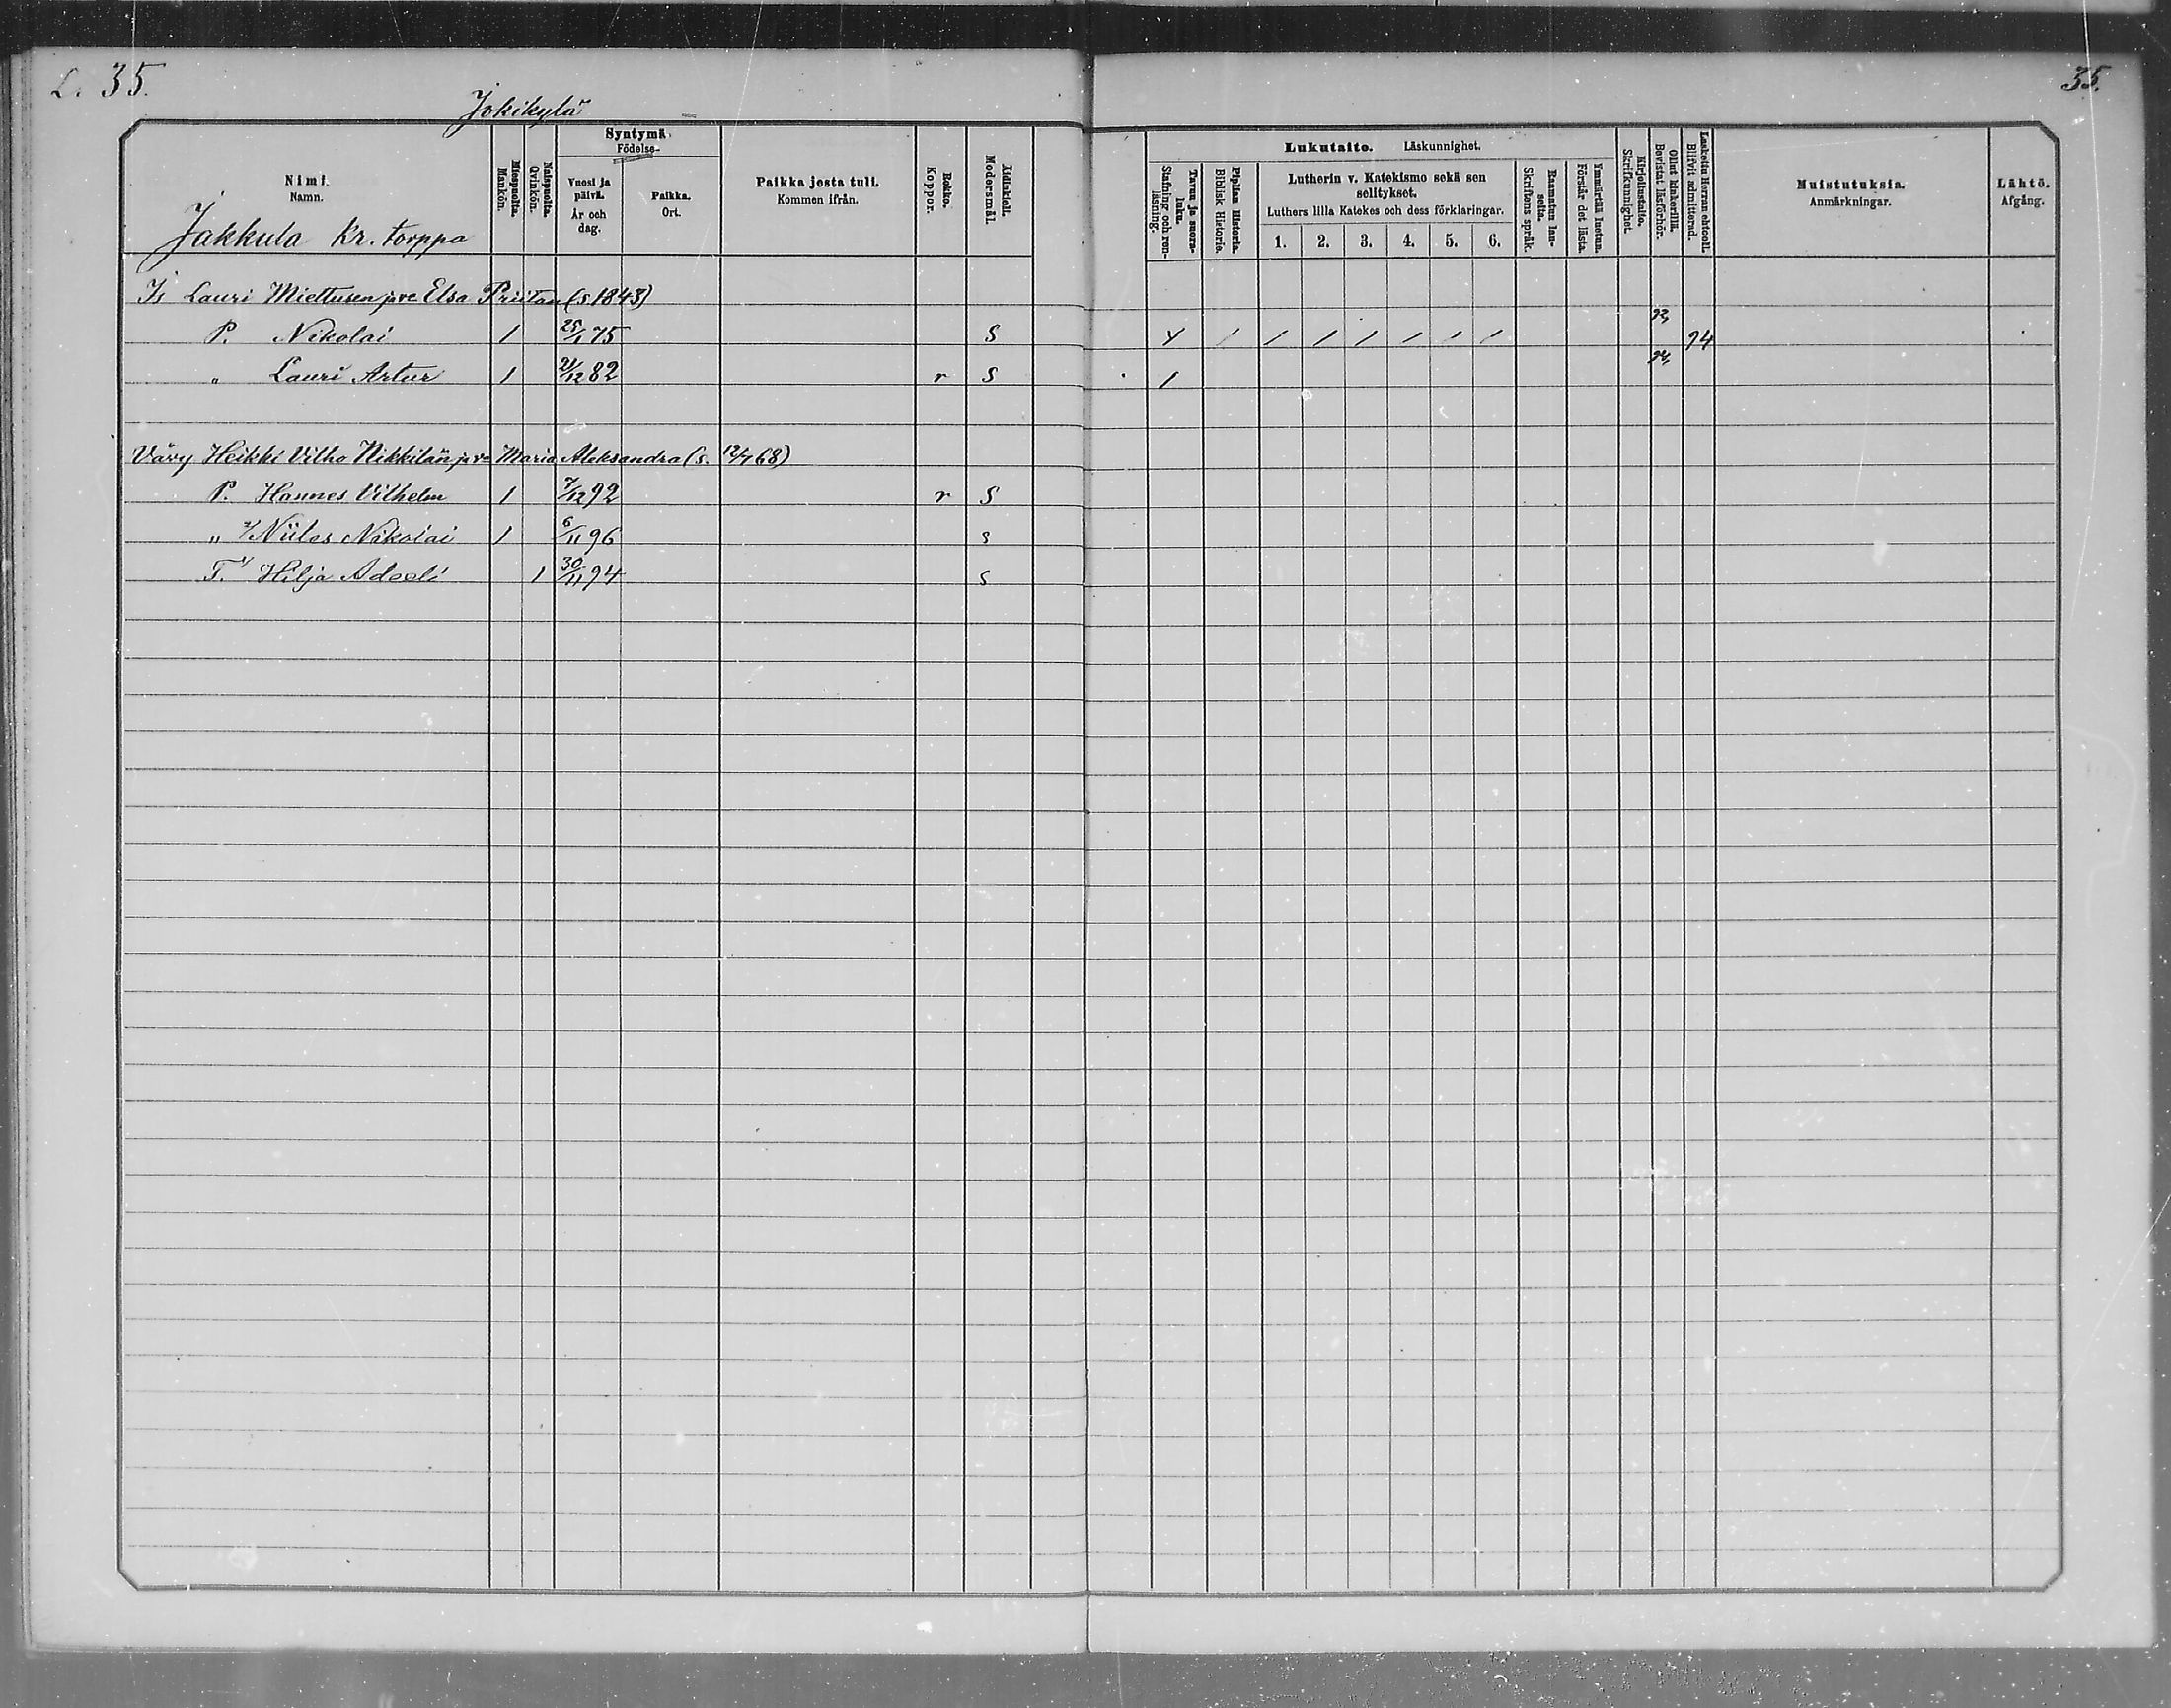 L. 35.
35.
Jokikylä
Nimi.
Namn.
Jakkula Kr. torppa
Miespuolia.
Mankön.
Naispuolia.
Qvinkön.
Syntymä.
Födelse-
Vuosi ja päivä.
År och dag.
Paikka.
Ort.
Paikka josta tuli.
Kommen ifrån.
Rokko.
Koppor.
Äidinkieli.
Modersmål.
Lukutaito. Läskunnighet.
Tavu ja suora-luku.
Stafning och ren-läsning.
Piplian Historia.
Biblisk Historie.
Lutherin v. Katekismo sekä sen
selitykset.
Luthers lilla Katekes och dess förklaringar.
1. 2. 3. 4. 5. 6.
Raamatun lau-seita.
Skriftens språk.
Ymmärtää luetun.
Förstår det lästa.
Kirjoitustaito.
Skrifkunnighet.
Ollut kinkerillä.
Bevistat läsförhör.
Laskettu Herran ehtool.
Blifvit admitterad.
Muistutuksia.
Anmärkningar.
Lähtö.
Afgång.
Is Lauri Miettusen ja ve Elsa Priitan (s. 1843)
P. Nikolai 1 25/1 75 S 94
" Lauri Artur 1 21/12 82 r S
Vävy Heikki Vilho Nikkilän ja ve Maria Aleksandra (s. 12/7 68)
P. Hannes Vilhelm 1 7/12 92 r S
" 2/ Niilos Nikolai 1 6/11 96 s
T. 1/ Hilja Adeeli 1 30/11 94 s